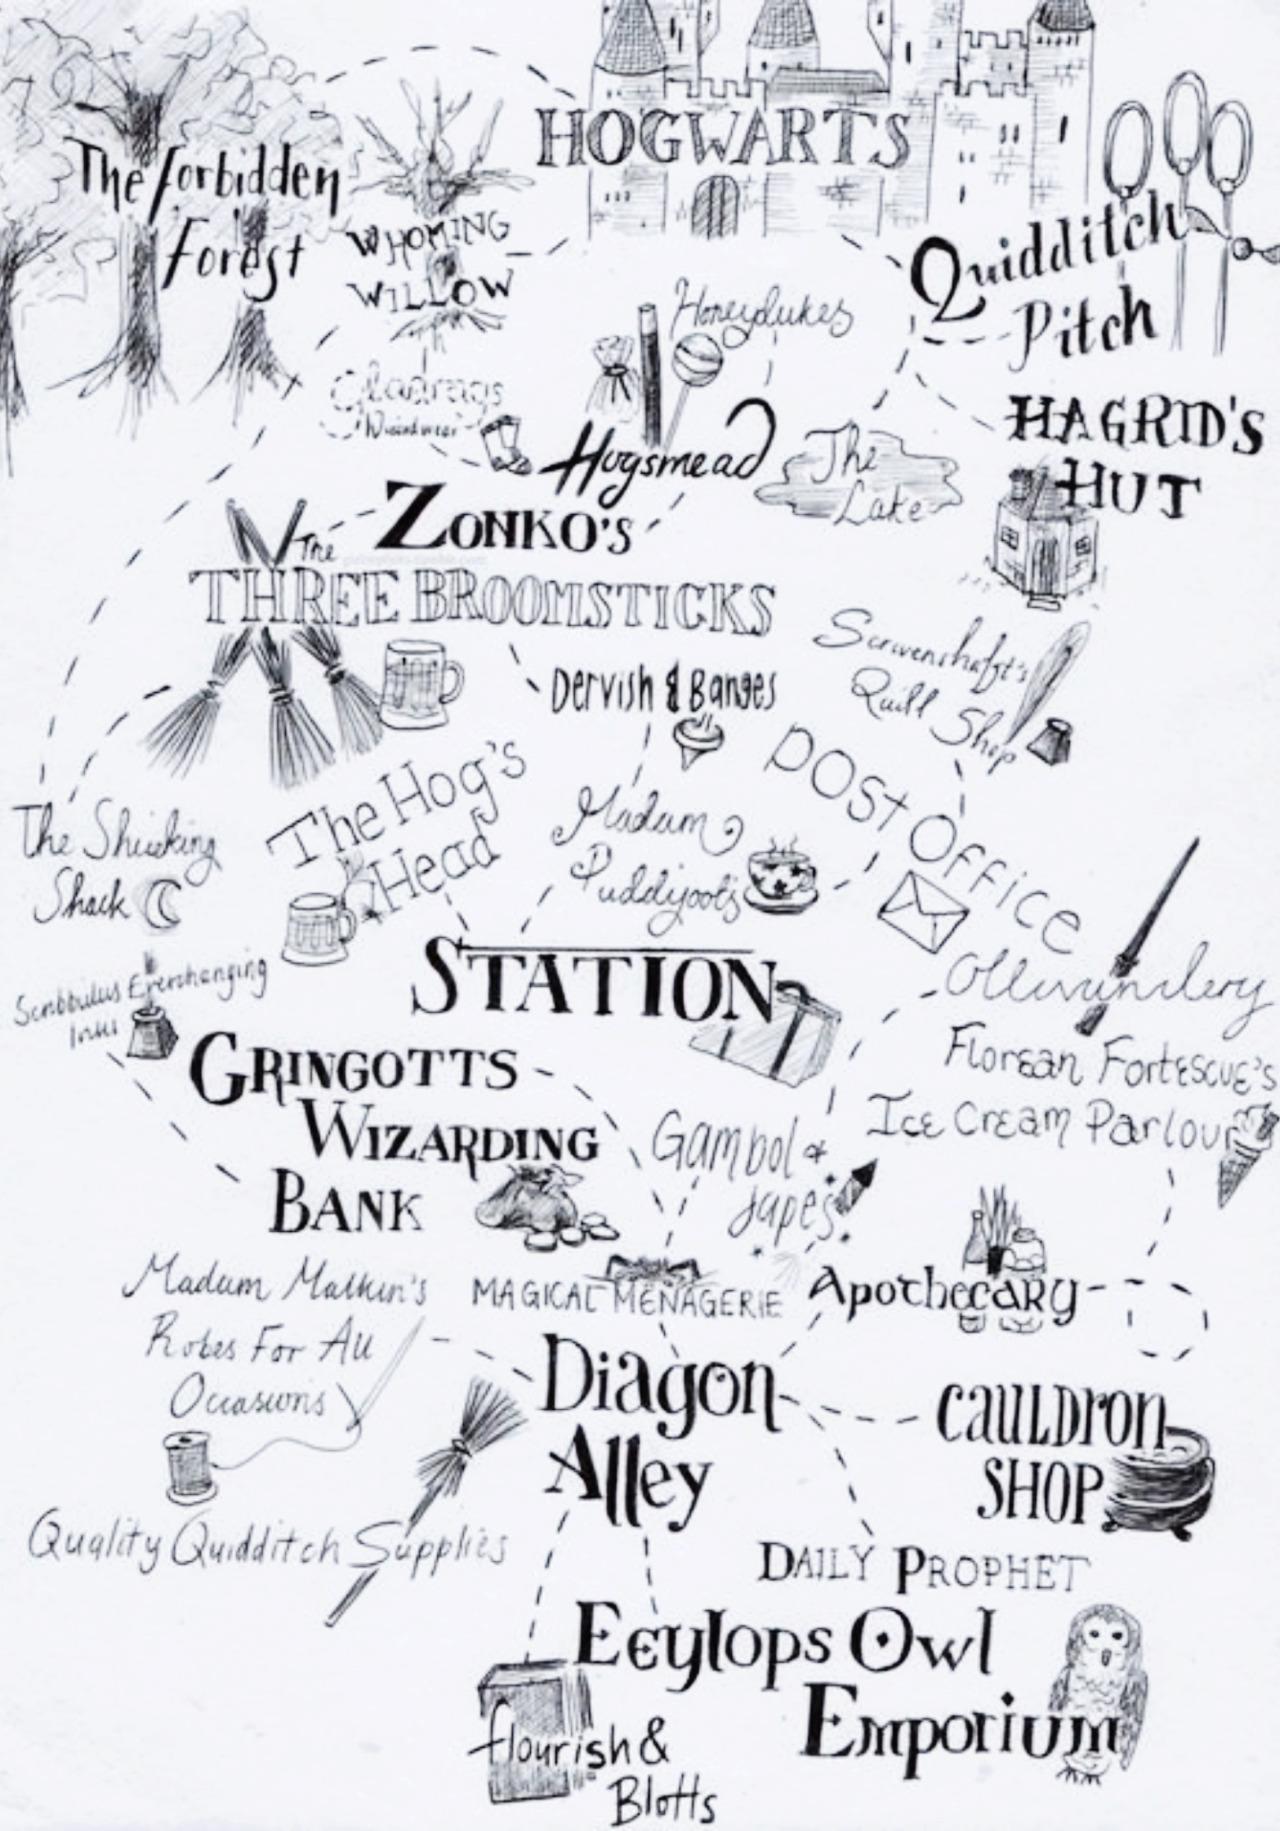 HOGWARTS
The Forbidden
Forest
WHOMING
WILLOW
Quidditch
Pitch
Honeydukes
Gladrags
Wizardwear
Hogsmead
The
Lake
HAGRID'S
HUT
ZONKO'S
The
THREE BROOMSTICKS
Dervish & Banges
Scrivenshaft's
Quill Shop
POST OFFICE
The Hog's
Head
Madam
Puddifoot's
The Shrieking
Shack
STATION
Scribbulus Everchanging
Inks
Ollivanders
GRINGOTTS
WIZARDING
BANK
Florean Fortescue's
Ice Cream Parlour
Gambol &
Japes
Madam Malkin's
Robes For All
Occasions
MAGICAL MENAGERIE
Apothecary
Diagon
Alley
CAULDRON
SHOP
Quality Quidditch Supplies
DAILY PROPHET
Eeylops Owl
Emporium
flourish &
Blotts